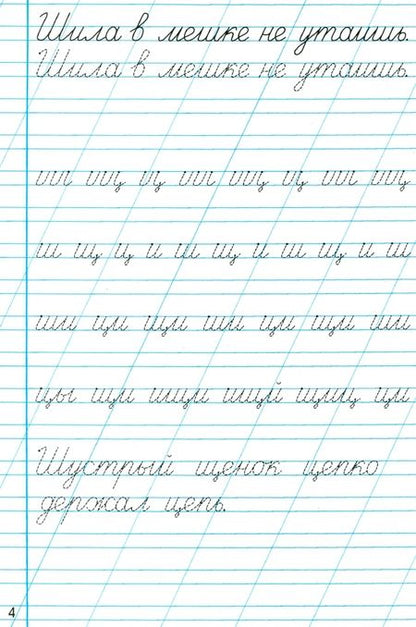 Шила в мешке не утаишь.
Шила в мешке не утаишь.
ш щ ц ш щ ц ш щ
ш щ ц и ш щ и ш щ и ш
ши ци щи ши ци щи ши
цы щи ищи ищй щиц ци
Шустрый щенок цепко
держал цепь.
4